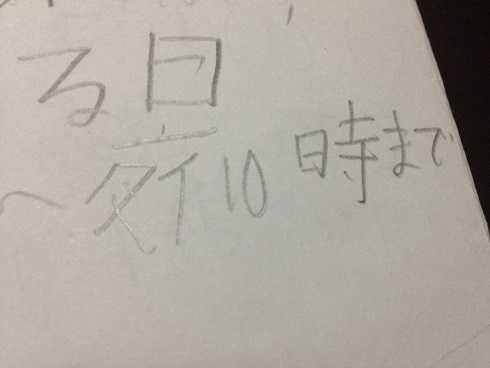 る日
〜夜10時まで